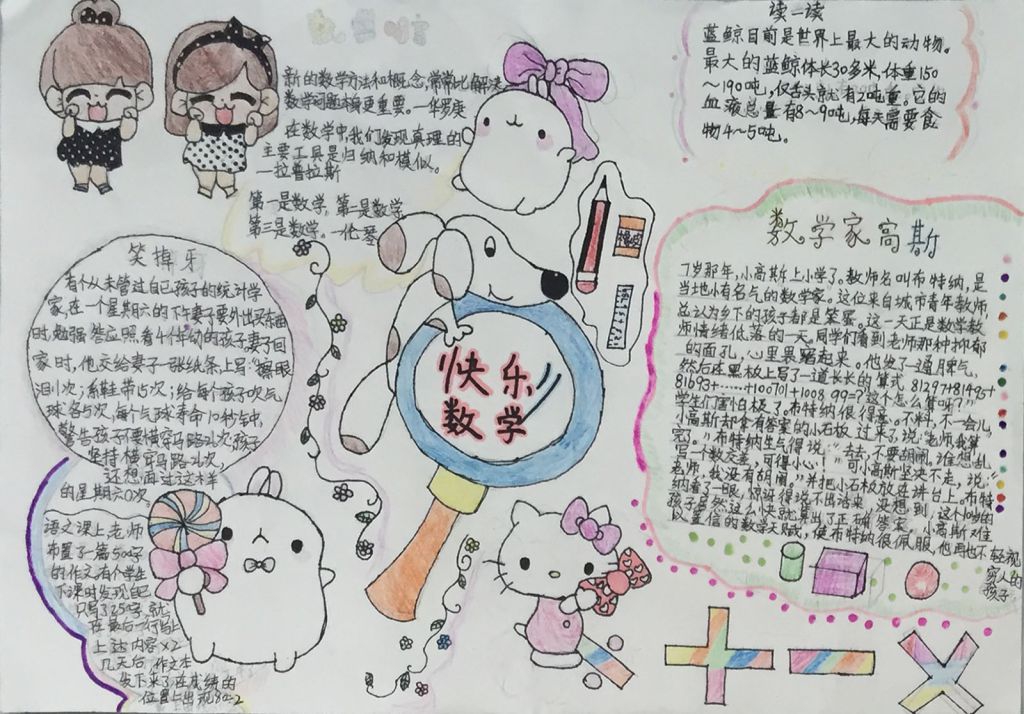 新的数学方法和概念,常常比解决
数学问题本身更重要。—华罗庚
在数学中,我们发现真理的
主要工具是归纳和模似。
—拉普拉斯
第一是数学,第二是数学
第三是数学。—伦琴
读一读
蓝鲸目前是世界上最大的动物。
最大的蓝鲸体长30多米,体重150
~190吨,仅舌头就有2吨重。它的
血液总量有8~9吨,每天需要食
物4~5吨。
笑掉牙
有个从未管过自己孩子的统计学
家,在一个星期六的下午妻子要外出买东西
时,勉强答应照看4个年幼的孩子妻子回
家时,他交给妻子一张纸条,上写:"擦眼
泪11次;系鞋带15次;给每个孩子吹气
球各5次,每个气球寿命10秒钟,
警告孩子不要横穿马路26次,孩子
坚持横穿马路26次,
还想再过这样
的星期六0次。
语文课上,老师
布置了一篇500字
的作文。有个学生
下课时发现自己
只写了250字,就
在最后一行写上
上述内容×2
几天后,作文本
发下来了在成绩的
位置上出现80÷2
快乐
数学
橡皮
数学家高斯
7岁那年,小高斯上小学了。教师名叫布特纳,是
当地小有名气的数学家。这位来自城市青年教师,
总认为乡下的孩子都是笨蛋。这一天正是数学教
师情绪低落的一天。同学们看到老师那种抑郁
的面孔,心里畏缩起来。他发了一通脾气,
然后在黑板上写了一道长长的算式 81297+81495+
81693+……+100701+100899=?这个怎么算呀?"
学生们害怕极了。布特纳很得意。不料,一会儿,
小高斯却拿有答案的小石板过来了,说:"老师,我算
完。"布特纳生气得说:"去,去,不要胡闹。谁想乱
写一个数交差,可得小心!"可小高斯坚决不走,说:"
老师,我没有胡闹。"并把小石板放在讲台上。布特
纳看了一眼,惊讶得说不出话来,没想到,这个10岁的
孩子居然这么快就算出了正确答案。小高斯对难
以置信的数学天赋,使布特纳很佩服,他再也不
轻视
穷人的
孩子